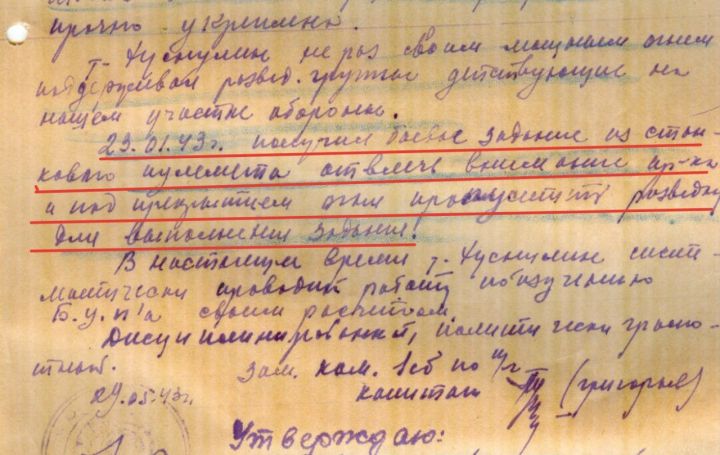 прочно укреплена.
т. Хуснулин не раз своим мощным огнем
поддерживал развед. группы действующие на
нашем участке обороны.
23.01.43г. получил боевое задание из стан-
кового пулемета отвлечь внимание пр-ка
и под прекрытием огня пропустить разведку
для выполнения задания.
В настоящем время т. Хуснулин систе-
матически проводит работу по изучению
Б.У.П'а своим расчетом
Дисциплинированный, политически грамо-
тный.
Зам. ком. 1сб по п/ч
29.05.43г. капитан (Григорьев)
Утверждаю: